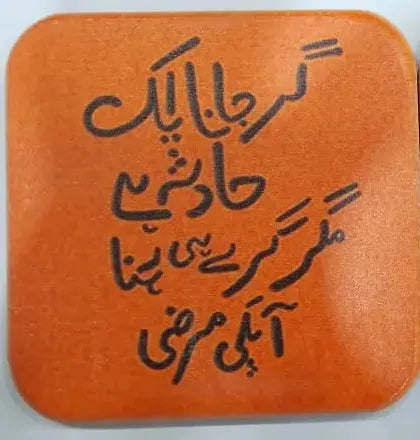 گر جانا ایک
حادثہ ہے
مگر گرے ہی رہنا
آپکی مرضی